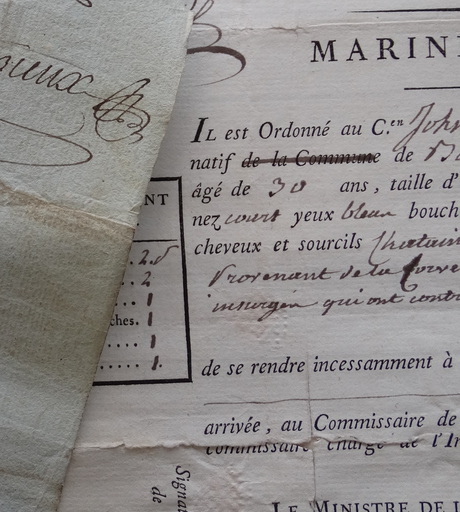 MARIN
IL est Ordonné au C.en John
natif de la Commune de
âgé de 30 ans, taille d'
nez court yeux bleux bouch
cheveux et sourcils Chatain
Provenant de la
insurgés qui ont
de se rendre incessamment à
arrivée, au Commissaire de
commissaire chargé de l'I
LE MINISTRE DE L
Signa
de
NT
2.
2
1
ches. 1
1
1.